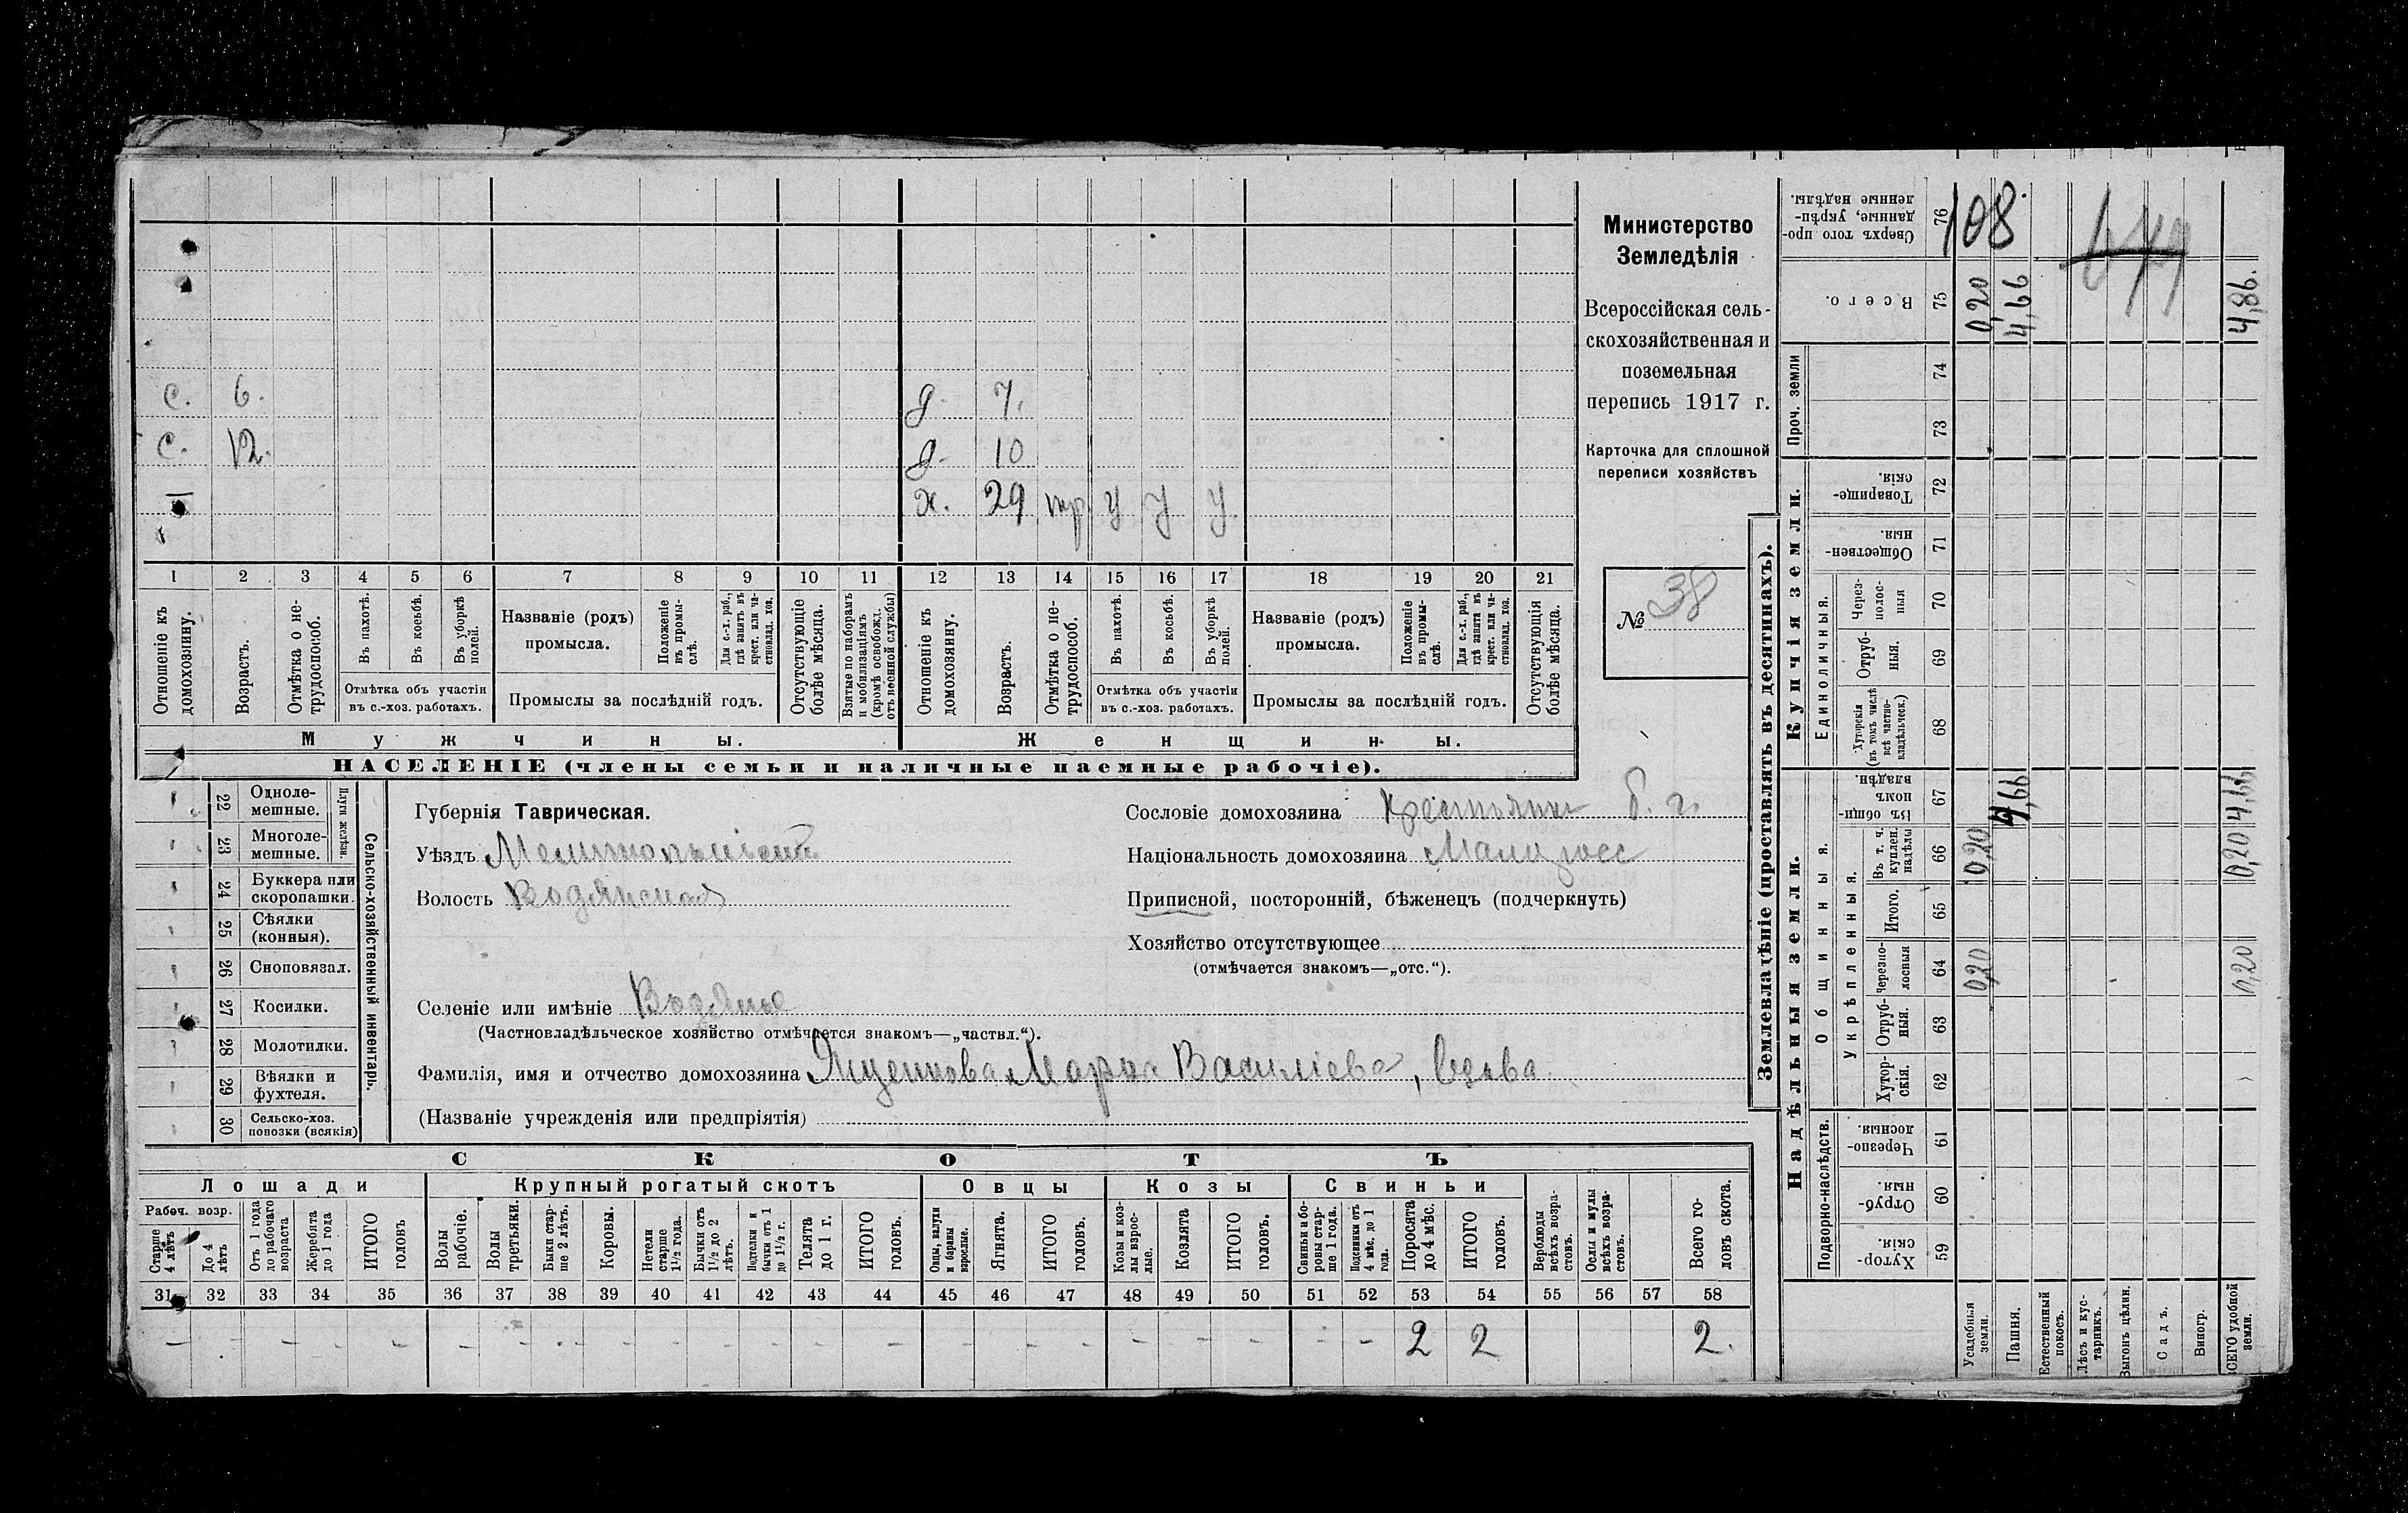 Министерство
Земледѣлія
Всероссійская сель-
скохозяйственная и
поземельная
перепись 1917 г.
Карточка для сплошной
переписи хозяйствъ
№ 38
с. 6. д. 7.
с. 12. д. 10
х. 29 тр. у у у
1 2 3 4 5 6 7 8 9 10 11 12 13 14 15 16 17 18 19 20 21
Отношеніе къ домохозяину.
Возрастъ.
Отмѣтка о не-трудоспособ.
Въ пахотѣ.
Въ косьбѣ.
Въ уборкѣ полей.
Отмѣтка объ участіи
въ с.-хоз. работахъ.
Названіе (родъ)
промысла.
Положеніе въ промы-слѣ.
Для с.-х. раб., гдѣ занятъ въ крест. или ча-стновлад. хоз.
Промыслы за послѣдній годъ.
Отсутствующіе болѣе мѣсяца.
Взятые по наборамъ и мобилизаціямъ (кромѣ освобожд. отъ военной службы)
Отношеніе къ домохозяину.
Возрастъ.
Отмѣтка о не-трудоспособ.
Въ пахотѣ.
Въ косьбѣ.
Въ уборкѣ полей.
Отмѣтка объ участіи
въ с.-хоз. работахъ.
Названіе (родъ)
промысла.
Положеніе въ промы-слѣ.
Для с.-х. раб., гдѣ занята въ крест. или ча-стновлад. хоз.
Промыслы за послѣдній годъ.
Отсутствующія болѣе мѣсяца.
Мужчины. Женщины.
НАСЕЛЕНІЕ (члены семьи и наличные наемные рабочіе).
Сельско-хозяйственный инвентарь.
Плуги желѣзн.
22 Одноле-мешные.
23 Многоле-мешные.
24 Буккера или скоропашки.
25 Сѣялки (конныя).
26 Сноповязал.
27 Косилки.
28 Молотилки.
29 Вѣялки и фухтеля.
30 Сельско-хоз. повозки (всякія)
Губернія Таврическая.
Уѣздъ Мелитопольскій
Волость Водянская
Селеніе или имѣніе Водяное
(Частновладѣльческое хозяйство отмѣчается знакомъ—„частвл.“).
Фамилія, имя и отчество домохозяина Ященкова Марія Василіева, Вдова
(Названіе учрежденія или предпріятія)
Сословіе домохозяина Крестьянин б. г.
Національность домохозяина Малоросс
Приписной, посторонній, бѣженецъ (подчеркнуть)
Хозяйство отсутствующее
(отмѣчается знакомъ—„отс.“).
СКОТЪ
Лошади Крупный рогатый скотъ Овцы Козы Свиньи
Рабоч. возр.
Старше 4 лѣтъ
До 4 лѣтъ
Отъ 1 года до рабочаго возраста
Жеребята до 1 года
ИТОГО головъ
Волы рабочіе.
Волы третьяки.
Быки стар-ше 2 лѣтъ.
Коровы.
Нетели старше 1½ года.
Бычки отъ 1½ до 2 лѣтъ.
Подтелки и бычки отъ 1 до 1½ г.
Телята до 1 г.
ИТОГО головъ.
Овцы, валухи и бараны взрослые.
Ягнята.
ИТОГО головъ.
Козы и коз-лы взрос-лые.
Козлята
ИТОГО головъ.
Свиньи и бо-ровы стар-ше 1 года.
Подсвинки отъ 4 мѣс. до 1 года.
Поросята до 4 мѣс.
ИТОГО головъ.
Верблюды всѣхъ возра-стовъ.
Ослы и мулы всѣхъ возра-стовъ.
Всего го-ловъ скота.
31 32 33 34 35 36 37 38 39 40 41 42 43 44 45 46 47 48 49 50 51 52 53 54 55 56 57 58
– – – – – – – – – – – – – – – – – – – – – – 2 2 2.
Землевладѣніе (проставлять въ десятинахъ).
Надѣльныя земли. Купчія земли. Проч. земли
Подворно-наслѣдств. Общинныя. Единоличныя.
Укрѣпленныя.
Хутор-скія. 59
Отруб-ныя. 60
Черезпо-лосныя. 61
Хутор-скія. 62
Отруб-ныя. 63
Черезпо-лосныя 64
Итого. 65
Въ т. ч. куплен. надѣлы 66
Въ общин-номъ владѣн. 67
Хуторскія (въ томъ числѣ всѣ частно-владѣльческ.) 68
Отруб-ныя. 69
Через-полос-ныя 70
Обществен-ныя. 71
Товарище-скія. 72
73
74
Всего. 75
Сверхъ того про-данные, укрѣп-ленные надѣлы. 76
Усадебныя земли. 0,20 0,20 0,20
Пашня. 4,66 4,66
Естественный покосъ.
Лѣсъ и кус-тарникъ.
Выгонъ цѣлин.
Садъ.
Виногр.
ВСЕГО удобной земли. 0,20 0,20 4,66 4,86.
108